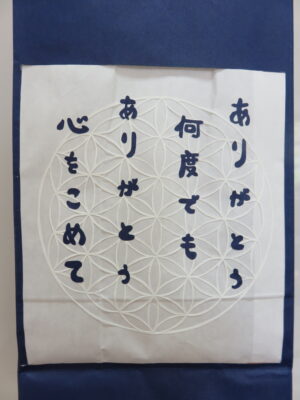 ありがとう
何度でも
ありがとう
心をこめて